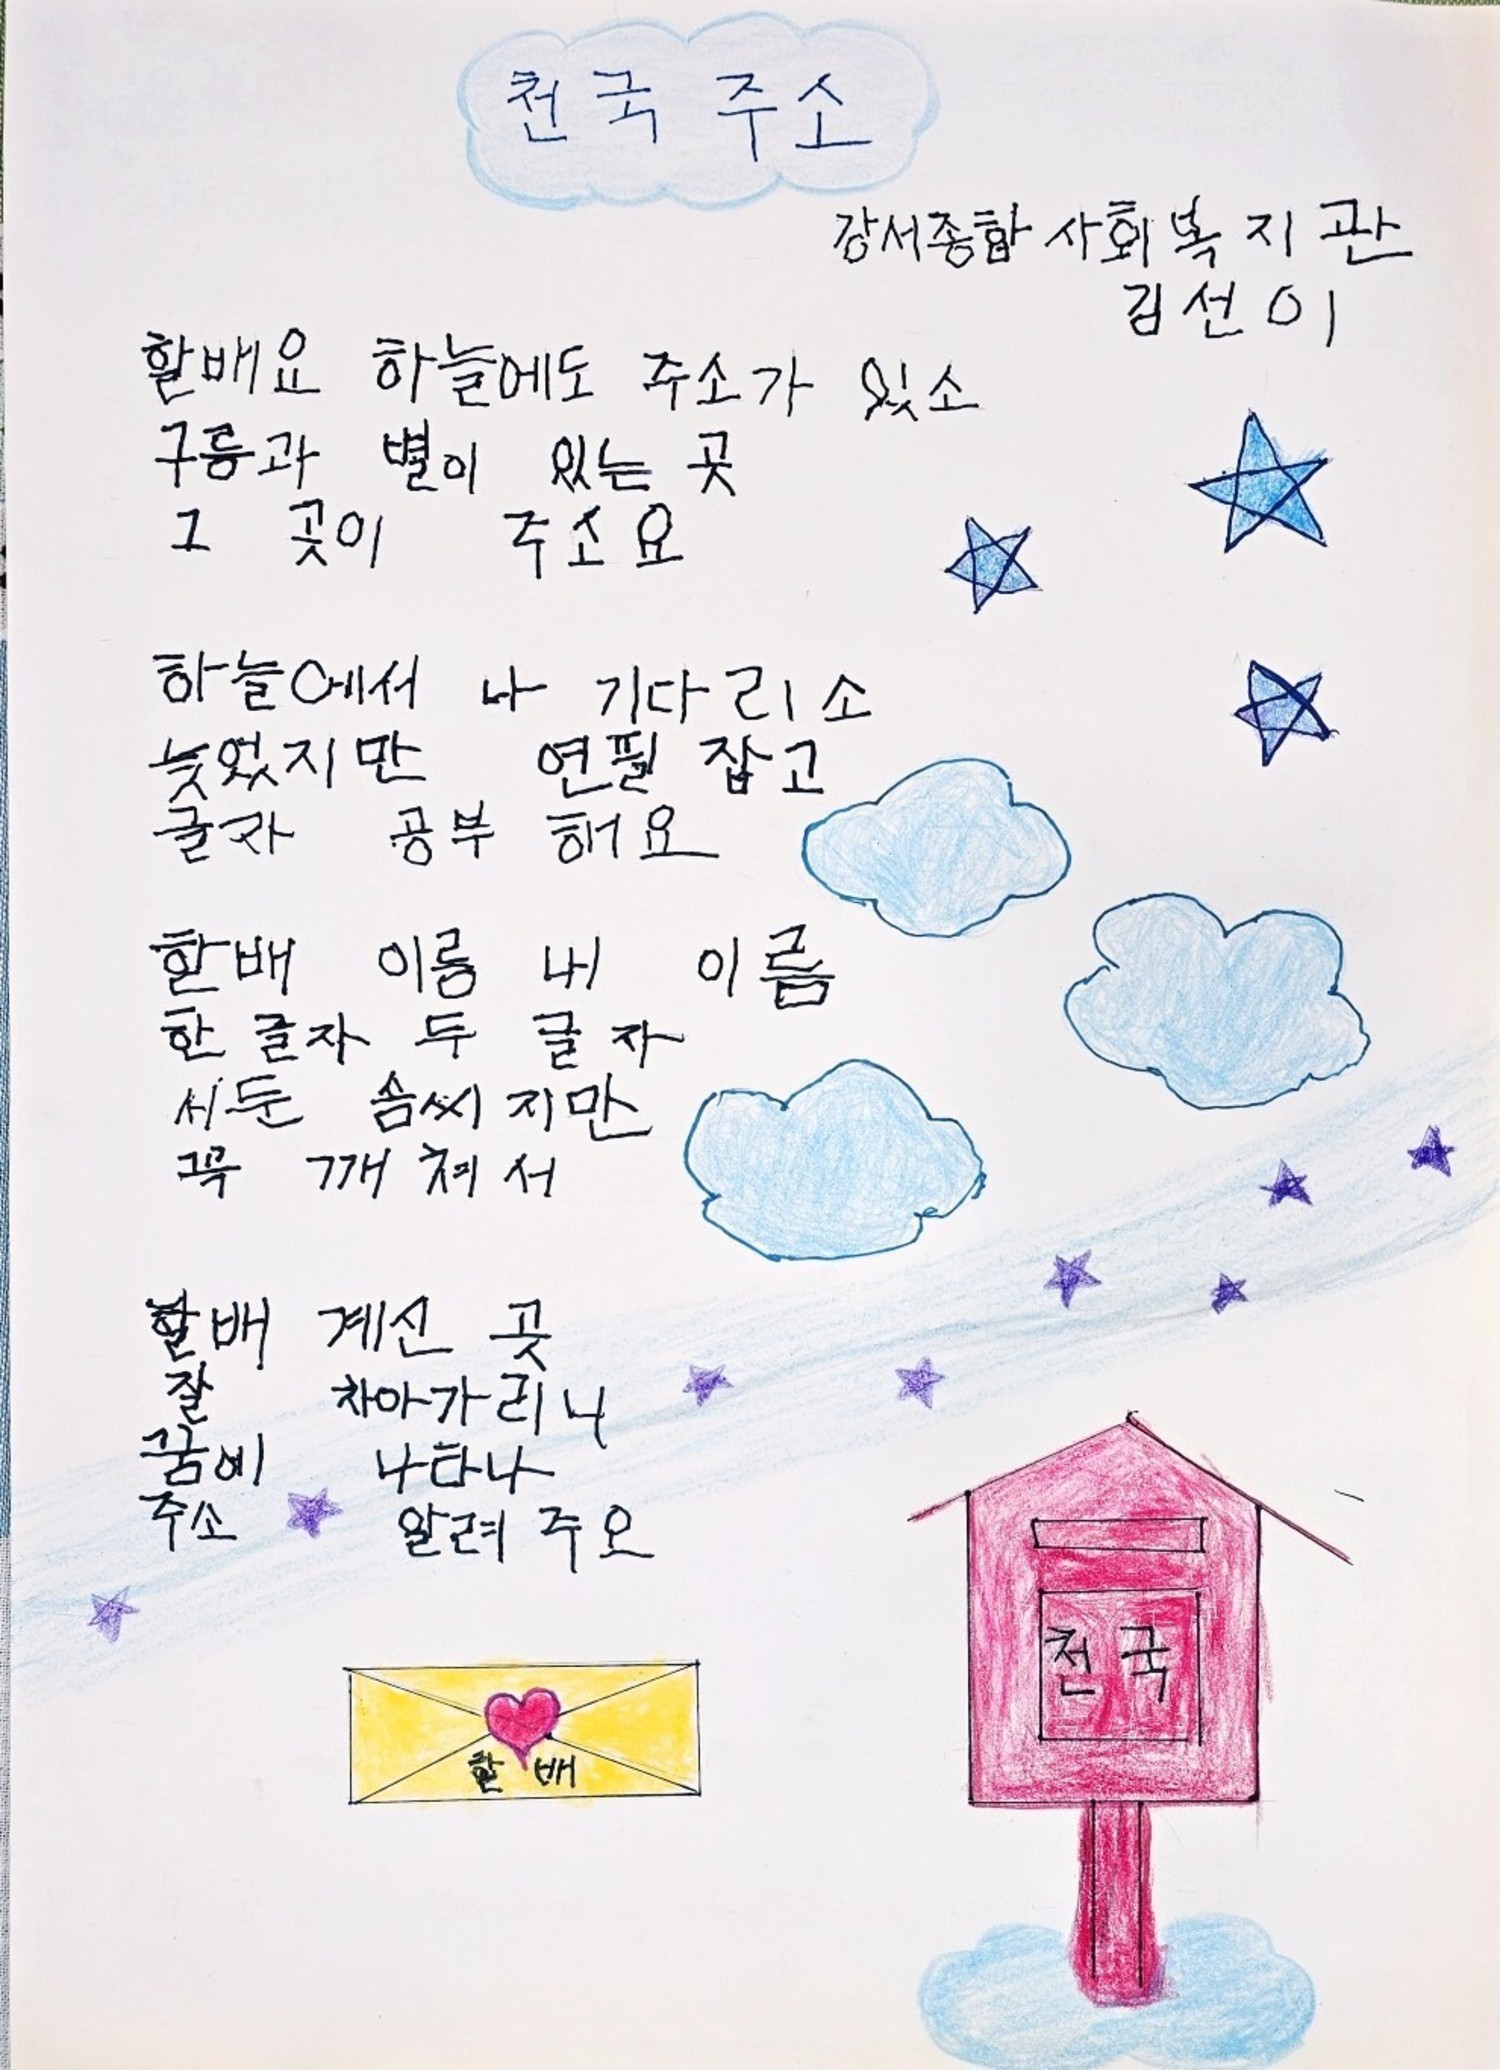 천국 주소
강서종합사회복지관
김선이
할배요 하늘에도 주소가 있소
구름과 별이 있는 곳
그 곳이 주소요
하늘에서 나 기다리소
늦었지만 연필 잡고
글자 공부 해요
할배 이름 내 이름
한 글자 두 글자
서둔 솜씨지만
꼭 깨쳐서
할배 계신 곳
잘 차아가리니
꿈에 나타나
주소 알려주오
할배
천국